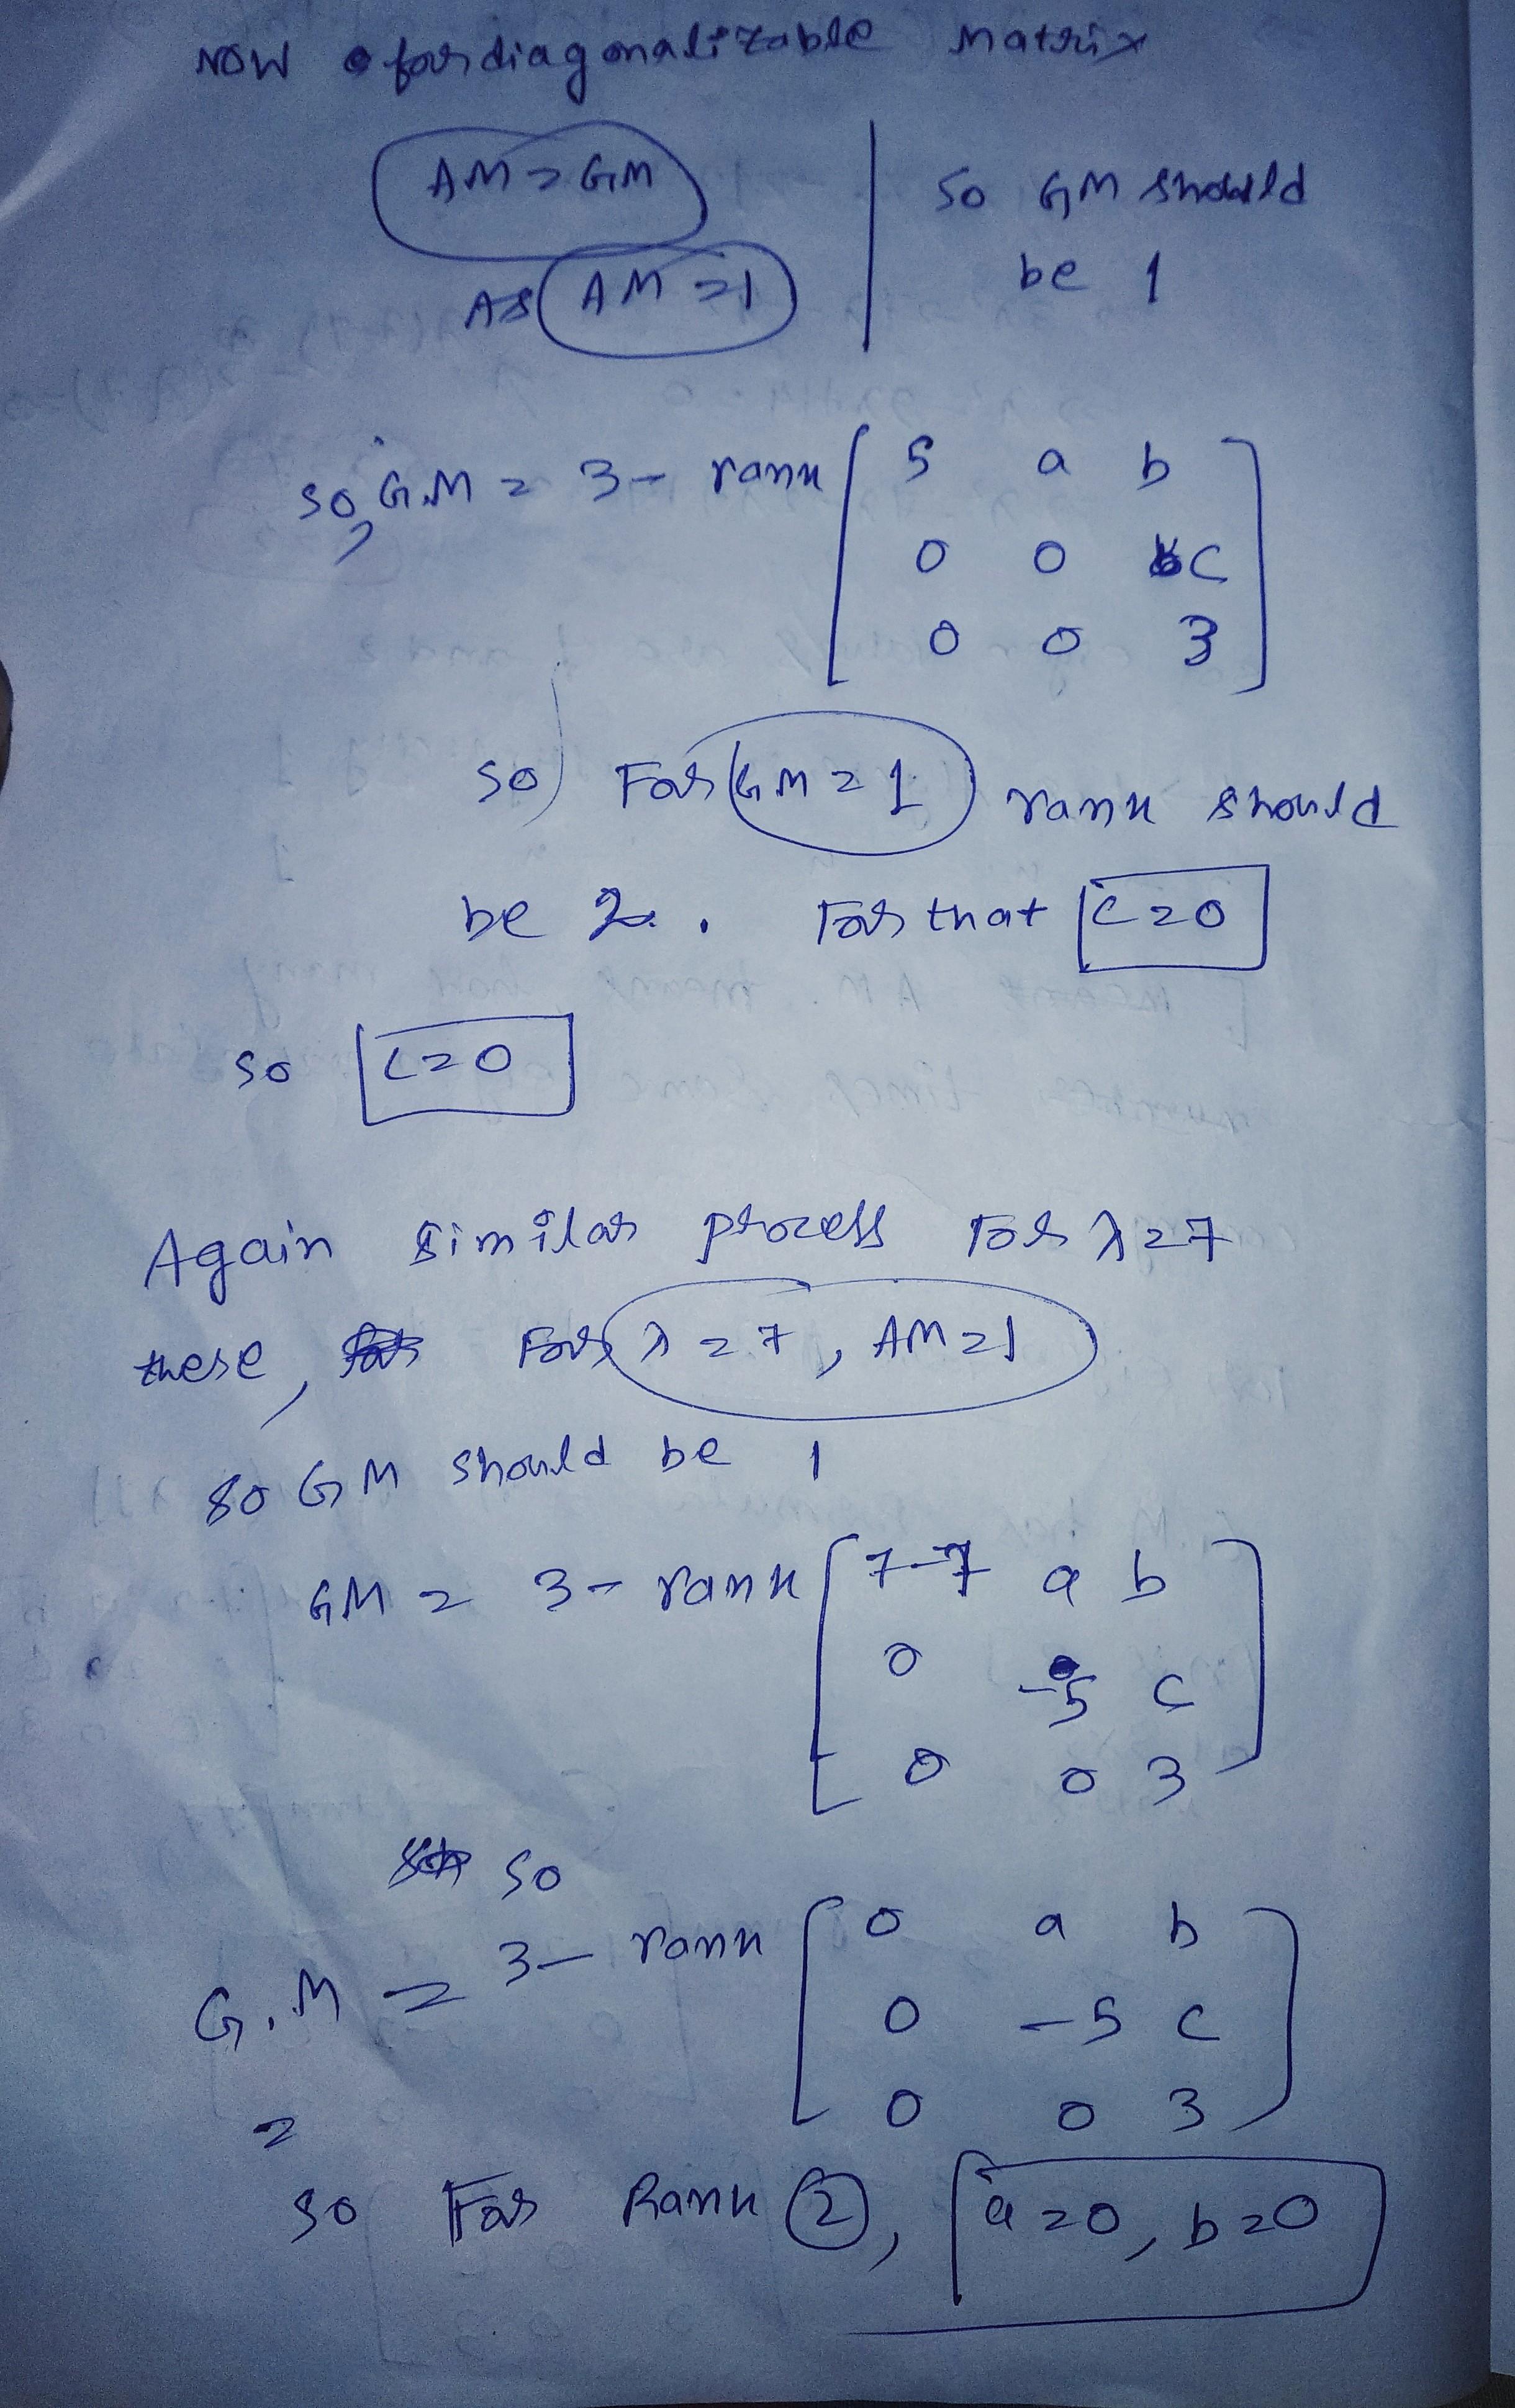 NOW for diagonalizable matrix
AM = GM
so GM should
As AM = 1
be 1
so, G.M = 3 - rank [ 5 a b
0 0 c
0 0 3 ]
so For GM = 1 rank should
be 2. For that c = 0
so c = 0
Again similar process For λ = 7
these, For λ = 7, AM = 1
so GM should be 1
GM = 3 - rank [ 7-7 a b
0 -5 c
0 0 3 ]
so
G.M = 3 - rank [ 0 a b
0 -5 c
0 0 3 ]
=
so For Rank 2, a = 0, b = 0